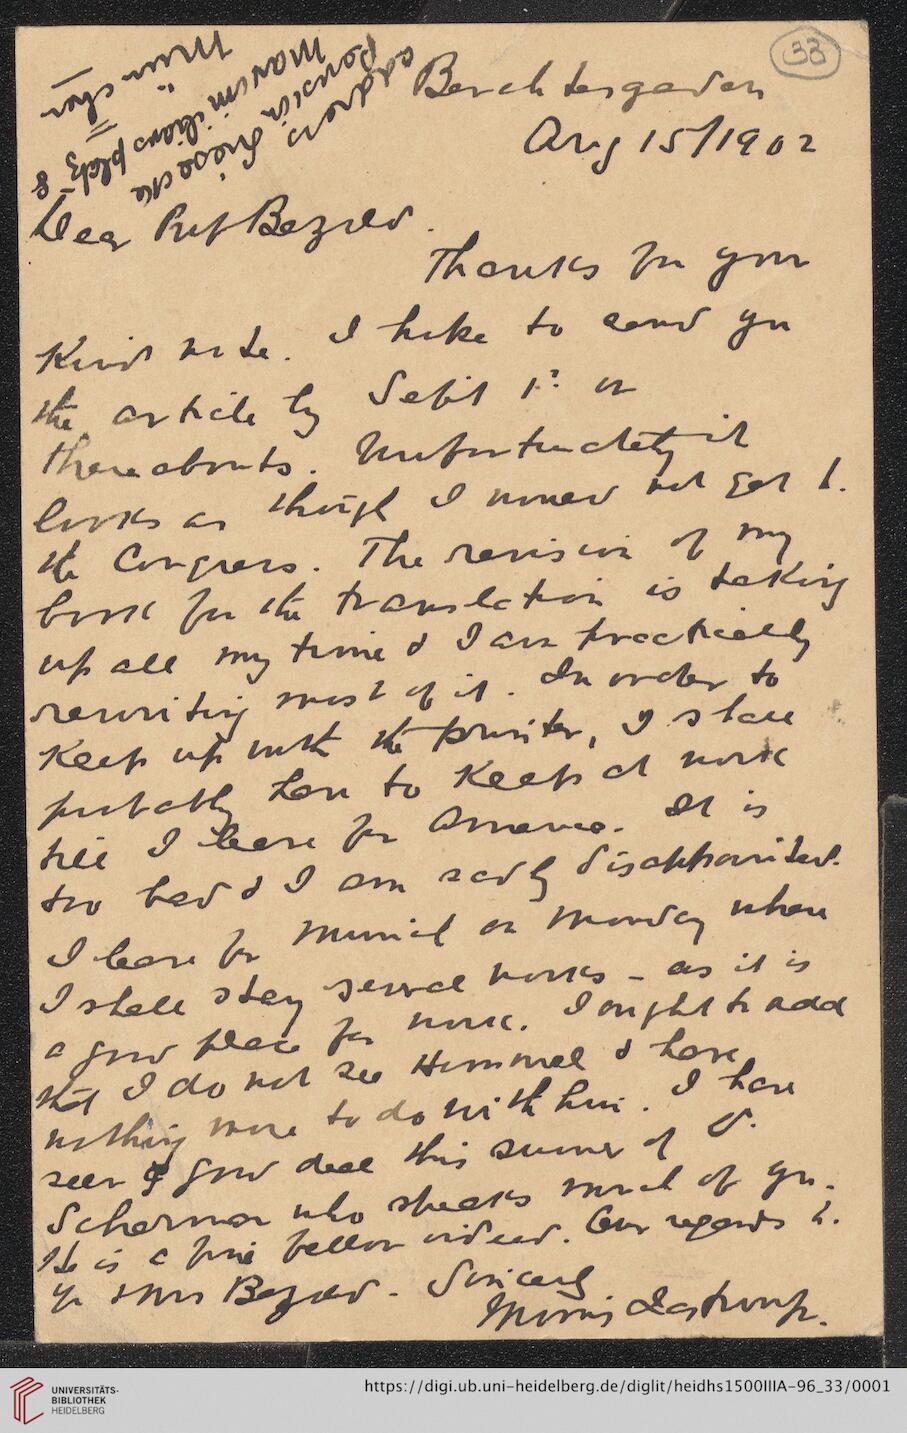 33
address
Pension Quisisana
Maximiliansplatz 8
München
Berchtesgaden
Aug 15/1902
Dear Prof Bezold.
Thanks for your
kind note. I hope to send you
the article by Sept 1st or
thereabouts. Unfortunately it
looks as though I would not get t.
the Congress. The revision of my
book for the translation is taking
up all my time & I am practically
rewriting most of it. In order to
keep up with the printer, I shall
probably have to keep at work
till I leave for America. It is
too bad & I am sadly disappointed.
I leave for Munich on Monday where
I shall stay several weeks - as it is
a good place for work. I ought to add
that I do not see Hommel & have
nothing more to do with him. I have
seen a good deal this summer of v.
Scherman who speaks much of you.
He is a fine fellow indeed. Our regards t.
you & Mrs Bezold. Sincerely
Morris Jastrow Jr.
UNIVERSITÄTS-
BIBLIOTHEK
HEIDELBERG
https://digi.ub.uni-heidelberg.de/diglit/heidhs1500IIIA-96_33/0001